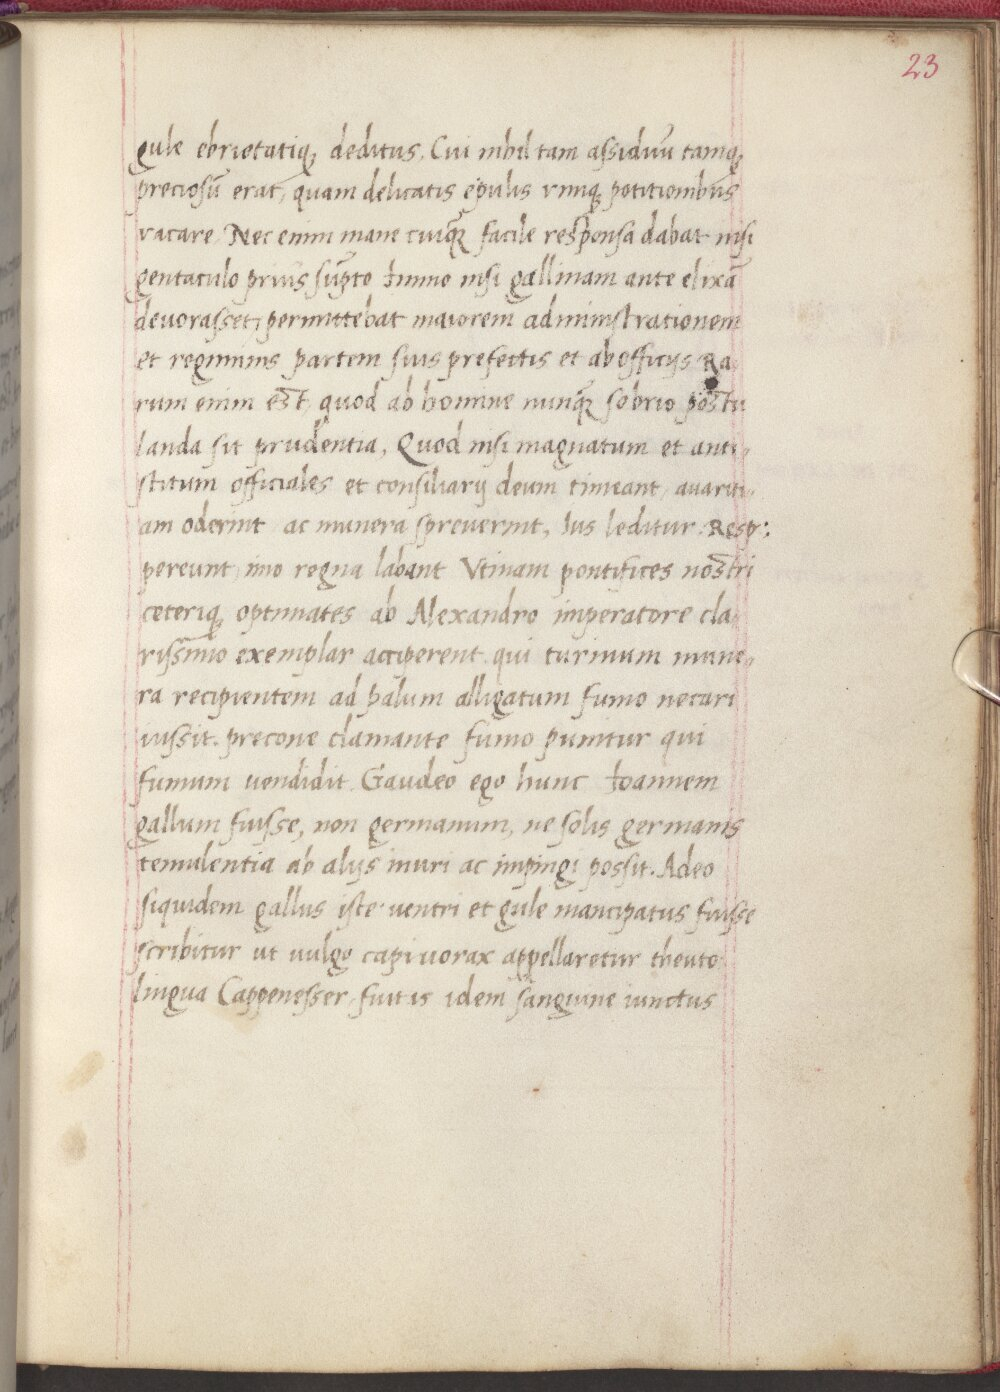 23
gule ebrietatiq, deditus. Cui nihil tam assiduū tamq,
preciosū erat, quam delicatis epulis viniq, potitionibus
vacare. Nec enim mane cuiq̃ facile responsa dabat nisi
gentaculo prius sūpto Immo nisi gallinam ante elixā
deuorasset, permittebat maiorem administrationem
et regiminis partem suis prefectis et ab officijs Ra
rum enim est, quod ab homine nunq̃ sobrio postu
landa sit prudentia, Quod nisi magnatum et anti-
stitum officiales et consiliarij deum timeant, auariti-
am oderint ac munera spreuerint, Ius leditur. Resp:
pereunt, imo regna labant Vtinam pontifices nostri
ceteriq, optimates ab Alexandro imperatore cla-
rissimo exemplar acciperent. qui turinum mune-
ra recipientem ad palum alligatum fumo necari
iussit. precone clamante fumo punitur qui
fumum uendidit. Gaudeo ego hunc Ioannem
gallum fuisse, non germanum, ne solis germanis
temulentia ab alijs inuri ac impingi possit. Adeo
siquidem gallus iste uentri et gule mancipatus fuisse
scribitur ut uulgo capiuorax appellaretur theuto
lingua Cappenesser, fuit is idem sanguine iunctus